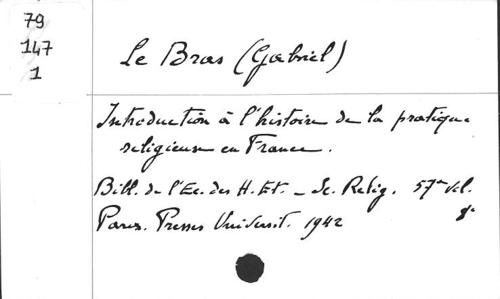 79
147
1
Le Bras (Gabriel)
Introduction à l'histoire de la pratique
religieuse en France.
Bibl. de l'Ec. des H. Et. - Sc. Relig. 57e vol.
Paris. Presses Universit. 1942 8°